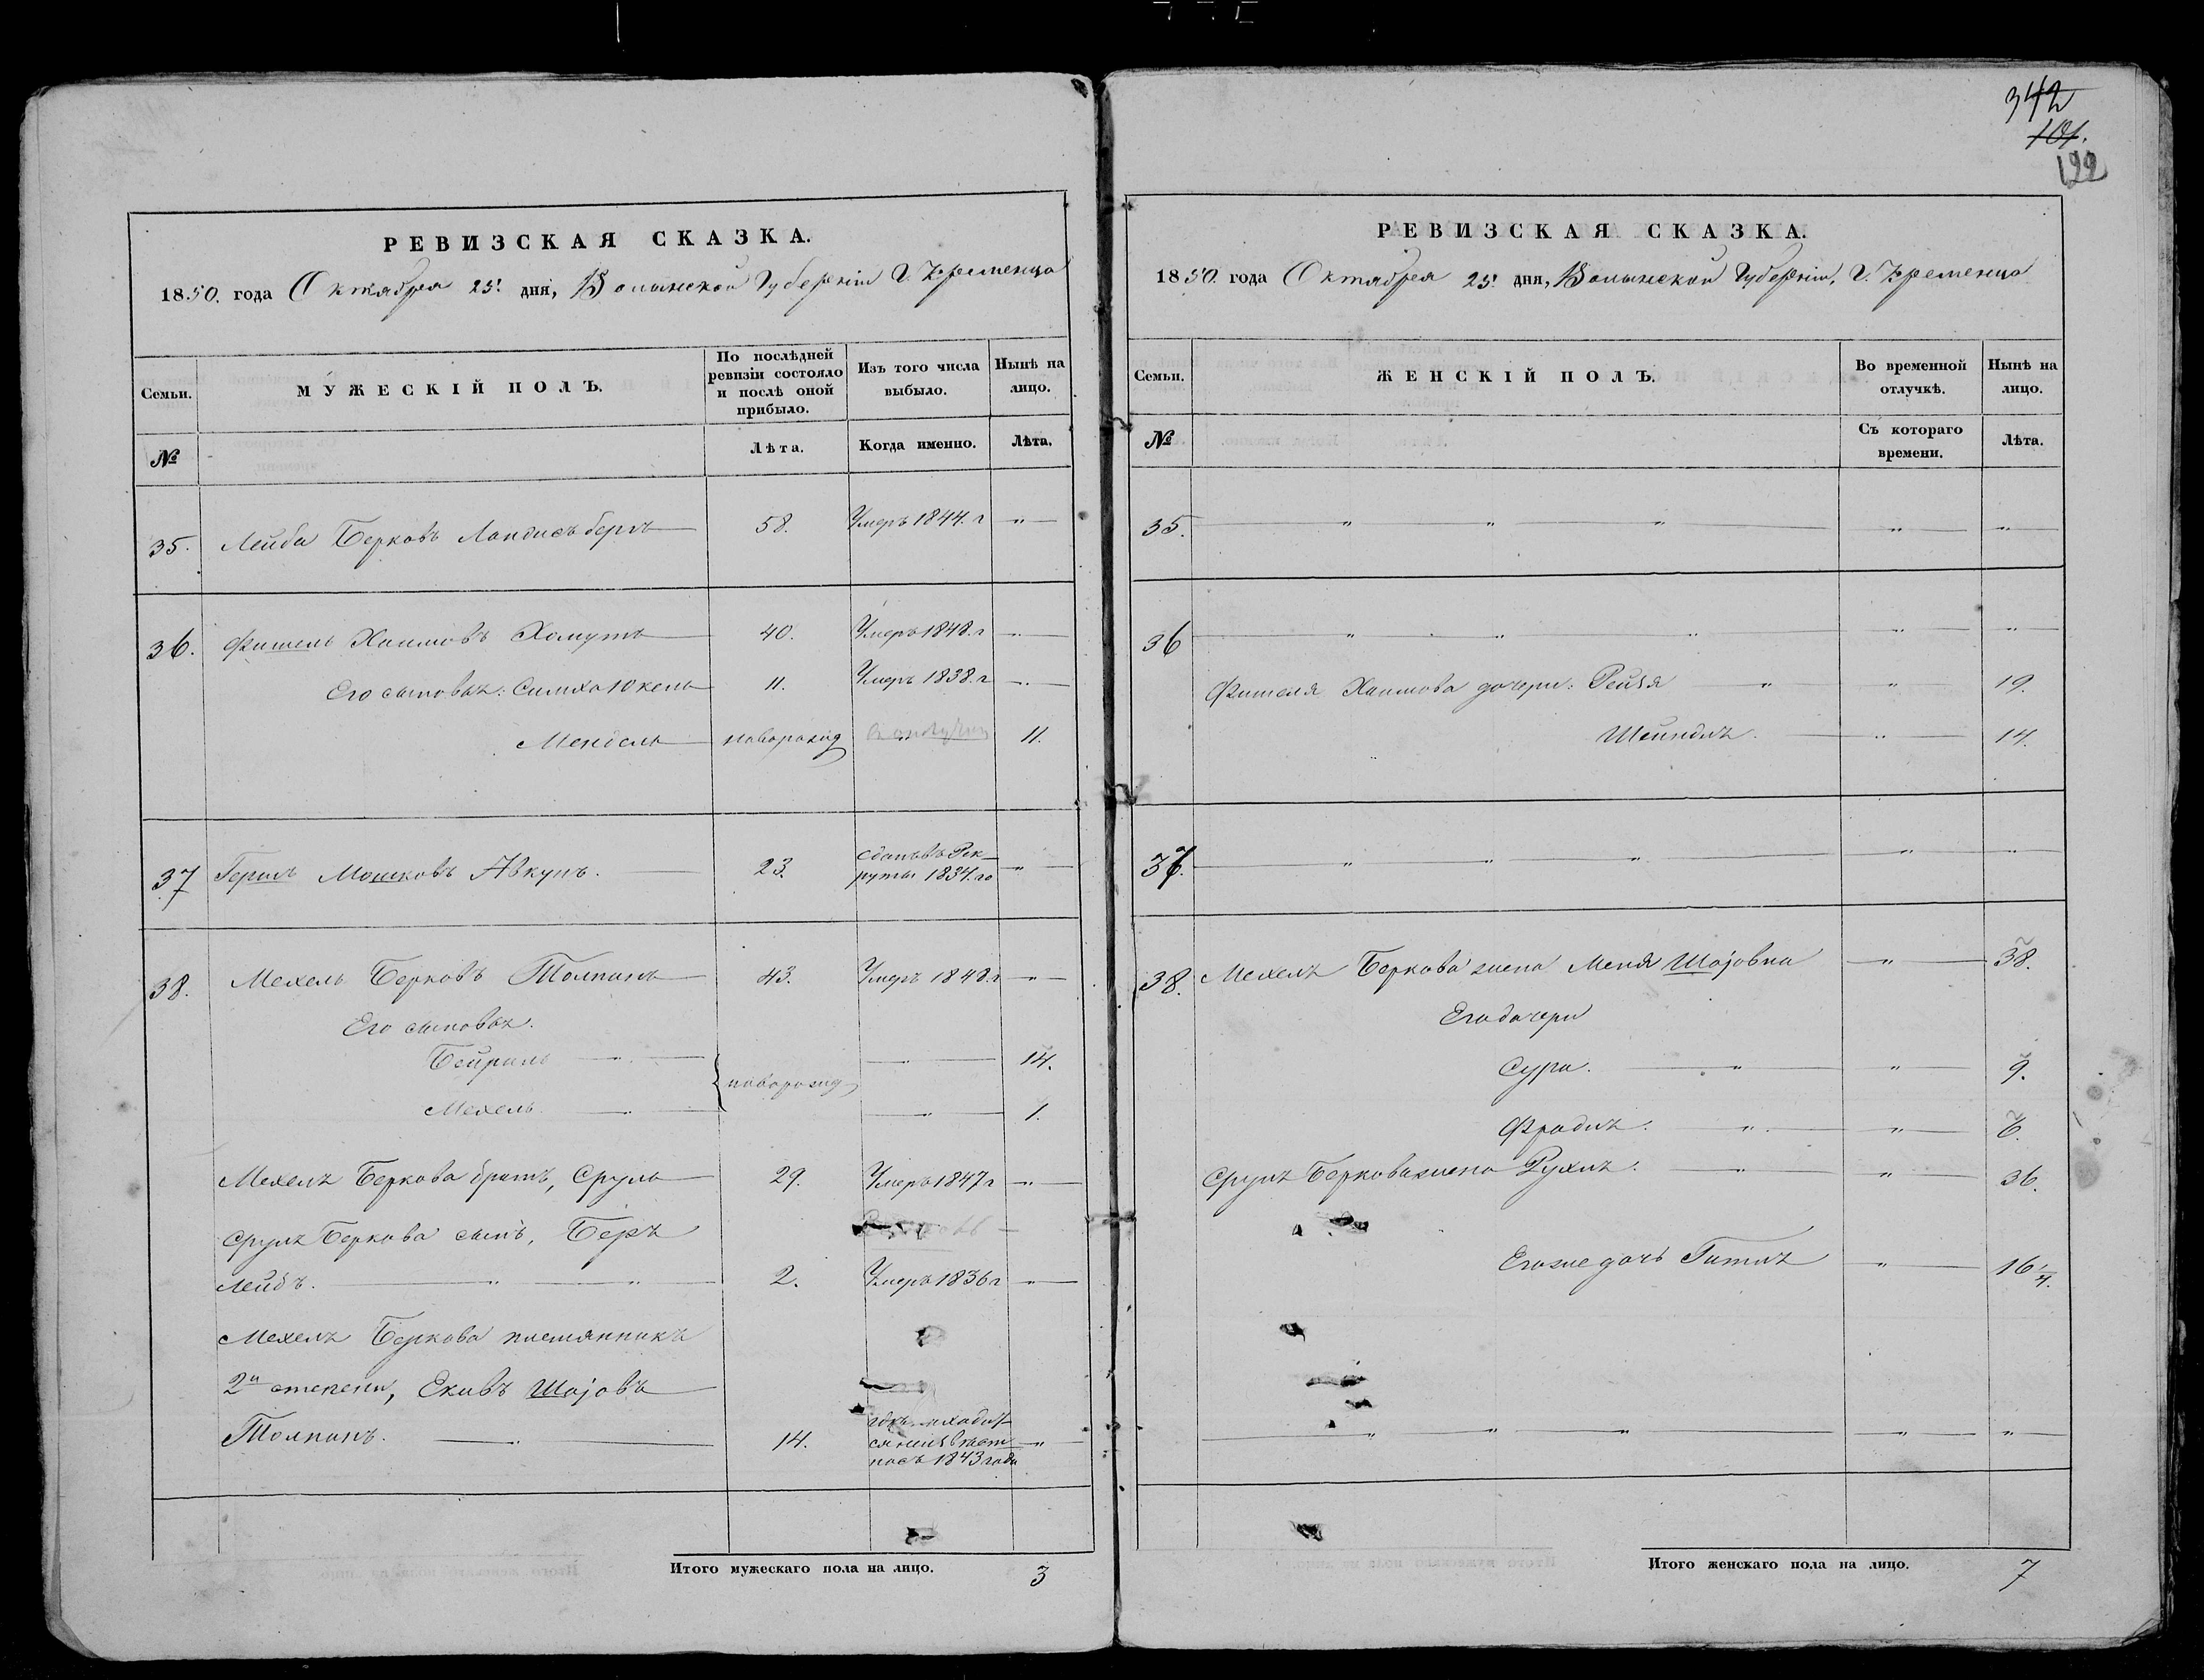 342
101.
122
РЕВИЗСКАЯ СКАЗКА.
1850. года Октября 25. дня, Волынской Губерніи Г. Кременца
Семьи.
МУЖЕСКІЙ ПОЛЪ.
По послѣдней ревизіи состояло и послѣ оной прибыло.
Изъ того числа выбыло.
Нынѣ на лицо.
№
Лѣта.
Когда именно.
Лѣта.
35. Лейба Берковъ Ландисъбергъ 58. Умеръ 1844. г "
36. Фишель Хаимовъ Хомутъ 40. Умеръ 1848. г "
Его сыновья: Симха Юкель 11. Умеръ 1838. г "
Мендель новорожд 11.
37 Гершъ Мошковъ Авкупъ. 23. Сданъ въ Рек-
руты 1834. го "
38. Мехель Берковъ Толпинъ 43. Умеръ 1848. г "
Его сыновья.
Бейриль " 14.
новорожд
Мехель " " 1.
Мехеля Беркова братъ, Сруль 29. Умеръ 1847 г "
Сруля Беркова сынъ, Беръ
Лейбъ. " " 2. Умеръ 1836 г "
Мехеля Беркова племянникъ
2й степени, Екивъ Шојовъ
Толпинъ. " 14. находит-
ся неизвѣст "
но съ 1843 года
Итого мужескаго пола на лицо. 3
РЕВИЗСКАЯ СКАЗКА.
1850. года Октября 25. дня, Волынской Губерніи, Г. Кременца
Семьи.
ЖЕНСКІЙ ПОЛЪ.
Во временной отлучкѣ.
Нынѣ на лицо.
№
Съ котораго времени.
Лѣта.
35. " " " " "
36 " " " " "
Фишеля Хаимова дочери: Рейзя " " 19.
Шейндля. " 14.
37. " " " " "
38. Мехеля Беркова жена Меня Шојовна " 38.
Его дочери
Сура. " " 9.
Фрадля. " " 6.
Сруля Беркова жена Рухля. " " 36.
Его же дочь Гитля " 16 1/4.
" " " " " "
Итого женскаго пола на лицо. 7